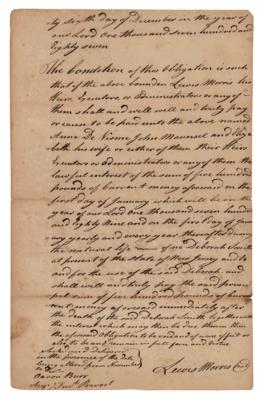 ty sixth day of December in the year of
our Lord One thousand seven hundred and
Eighty seven
The Condition of this Obligation is such
that if the above bounden Lewis Morris his
Heirs Executors or Administrators or any of
them shall and well and truly pay
or cause to be paid unto the above named
Anne De Visme John Maunsel and Eliza
beth his wife or either of them their Heirs
Executors or Administrators or any of them the
lawful interest of the sum of five hundred
pounds of Current money aforesaid on the
first day of January which will be in the
year of our Lord One thousand seven hundred
and Eighty Nine and on the first day of Janu
ary yearly and every year thereafter during
the natural life of one Deborah Smith
at present of the State of New Jersey to
and for the use of the said Deborah and
shall well and truly pay the said
sum of five hundred Pounds of
money aforesaid immediately after
the death of the said Deborah Smith together with
the interest which may then be due thereon then
the present Obligation to be void of none effect or
else to be and remain in full force and virtue
Sealed and Delivered
in the presence of
Aaron Burr
Prevost
Lewis Morris